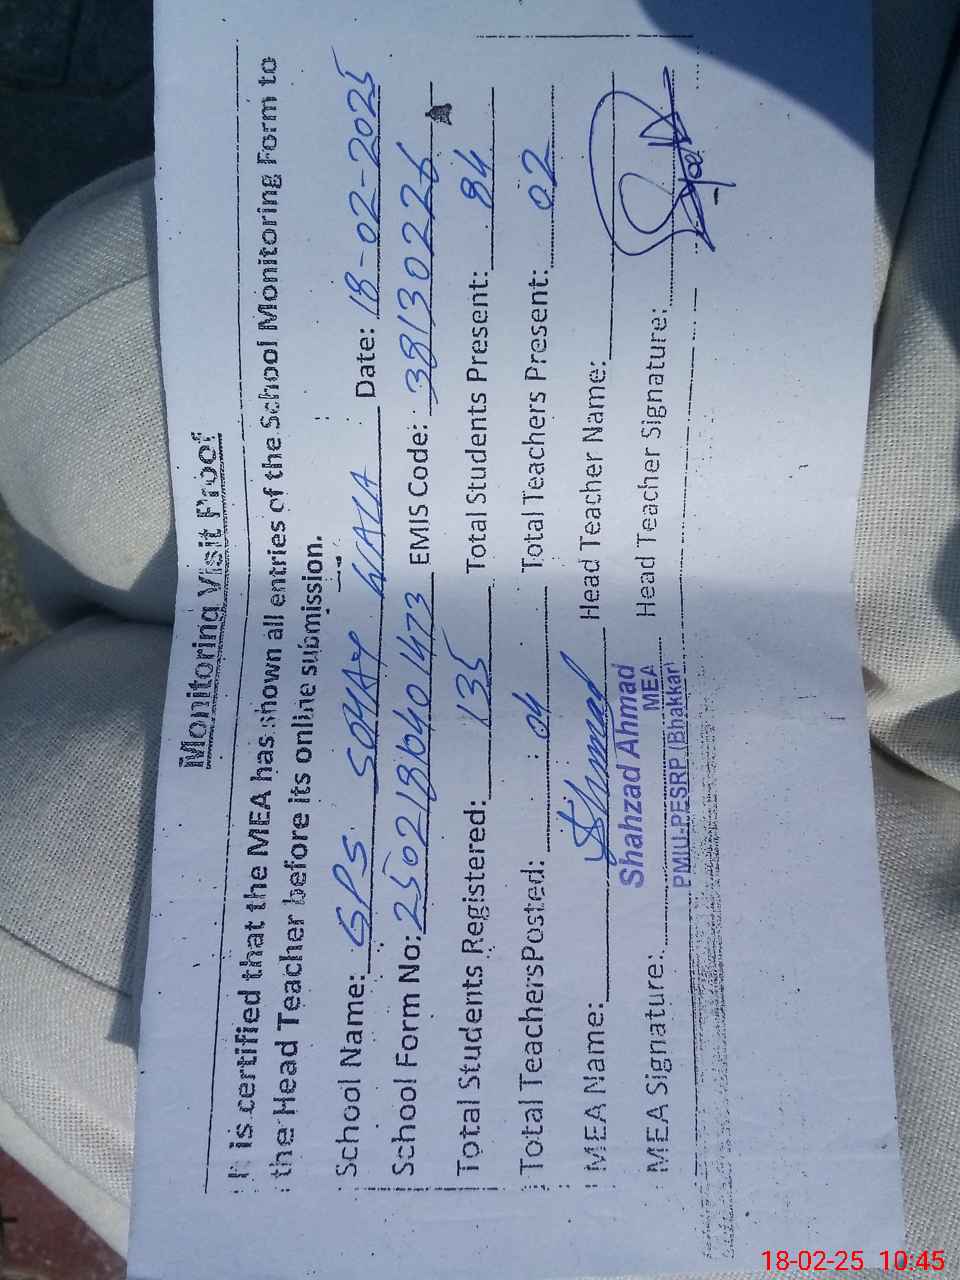 Monitoring Visit Proof
It is certified that the MEA has shown all entries of the School Monitoring Form to
the Head Teacher before its online submission.
School Name: GPS SOHAY WALA Date: 18-02-2025
School Form No: 25021810401473 EMIS Code: 38130226
Total Students Registered: 135 Total Students Present: 84
Total TeachersPosted: 04 Total Teachers Present: 02
MEA Name: Ahmad Head Teacher Name:
Shahzad Ahmad
MEA
MEA Signature: PMIU-PESRP (Bhakkar) Head Teacher Signature:
18-02-25 10:45